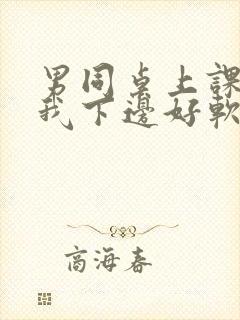 男同桌上課
我下邊好軟
商海春